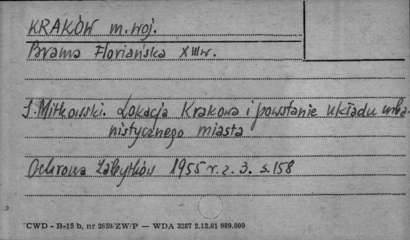 KRAKÓW m. woj.
Brama Floriańska XIII w.
J. Mitkowski. Lokacja Krakowa i powstanie układu urba-
nistycznego miasta
Ochrona Zabytków 1955 r. z. 3. s. 158
CWD - B-15 b, nr 2659/ZW/P — WDA 3287 2.12.61 999.000